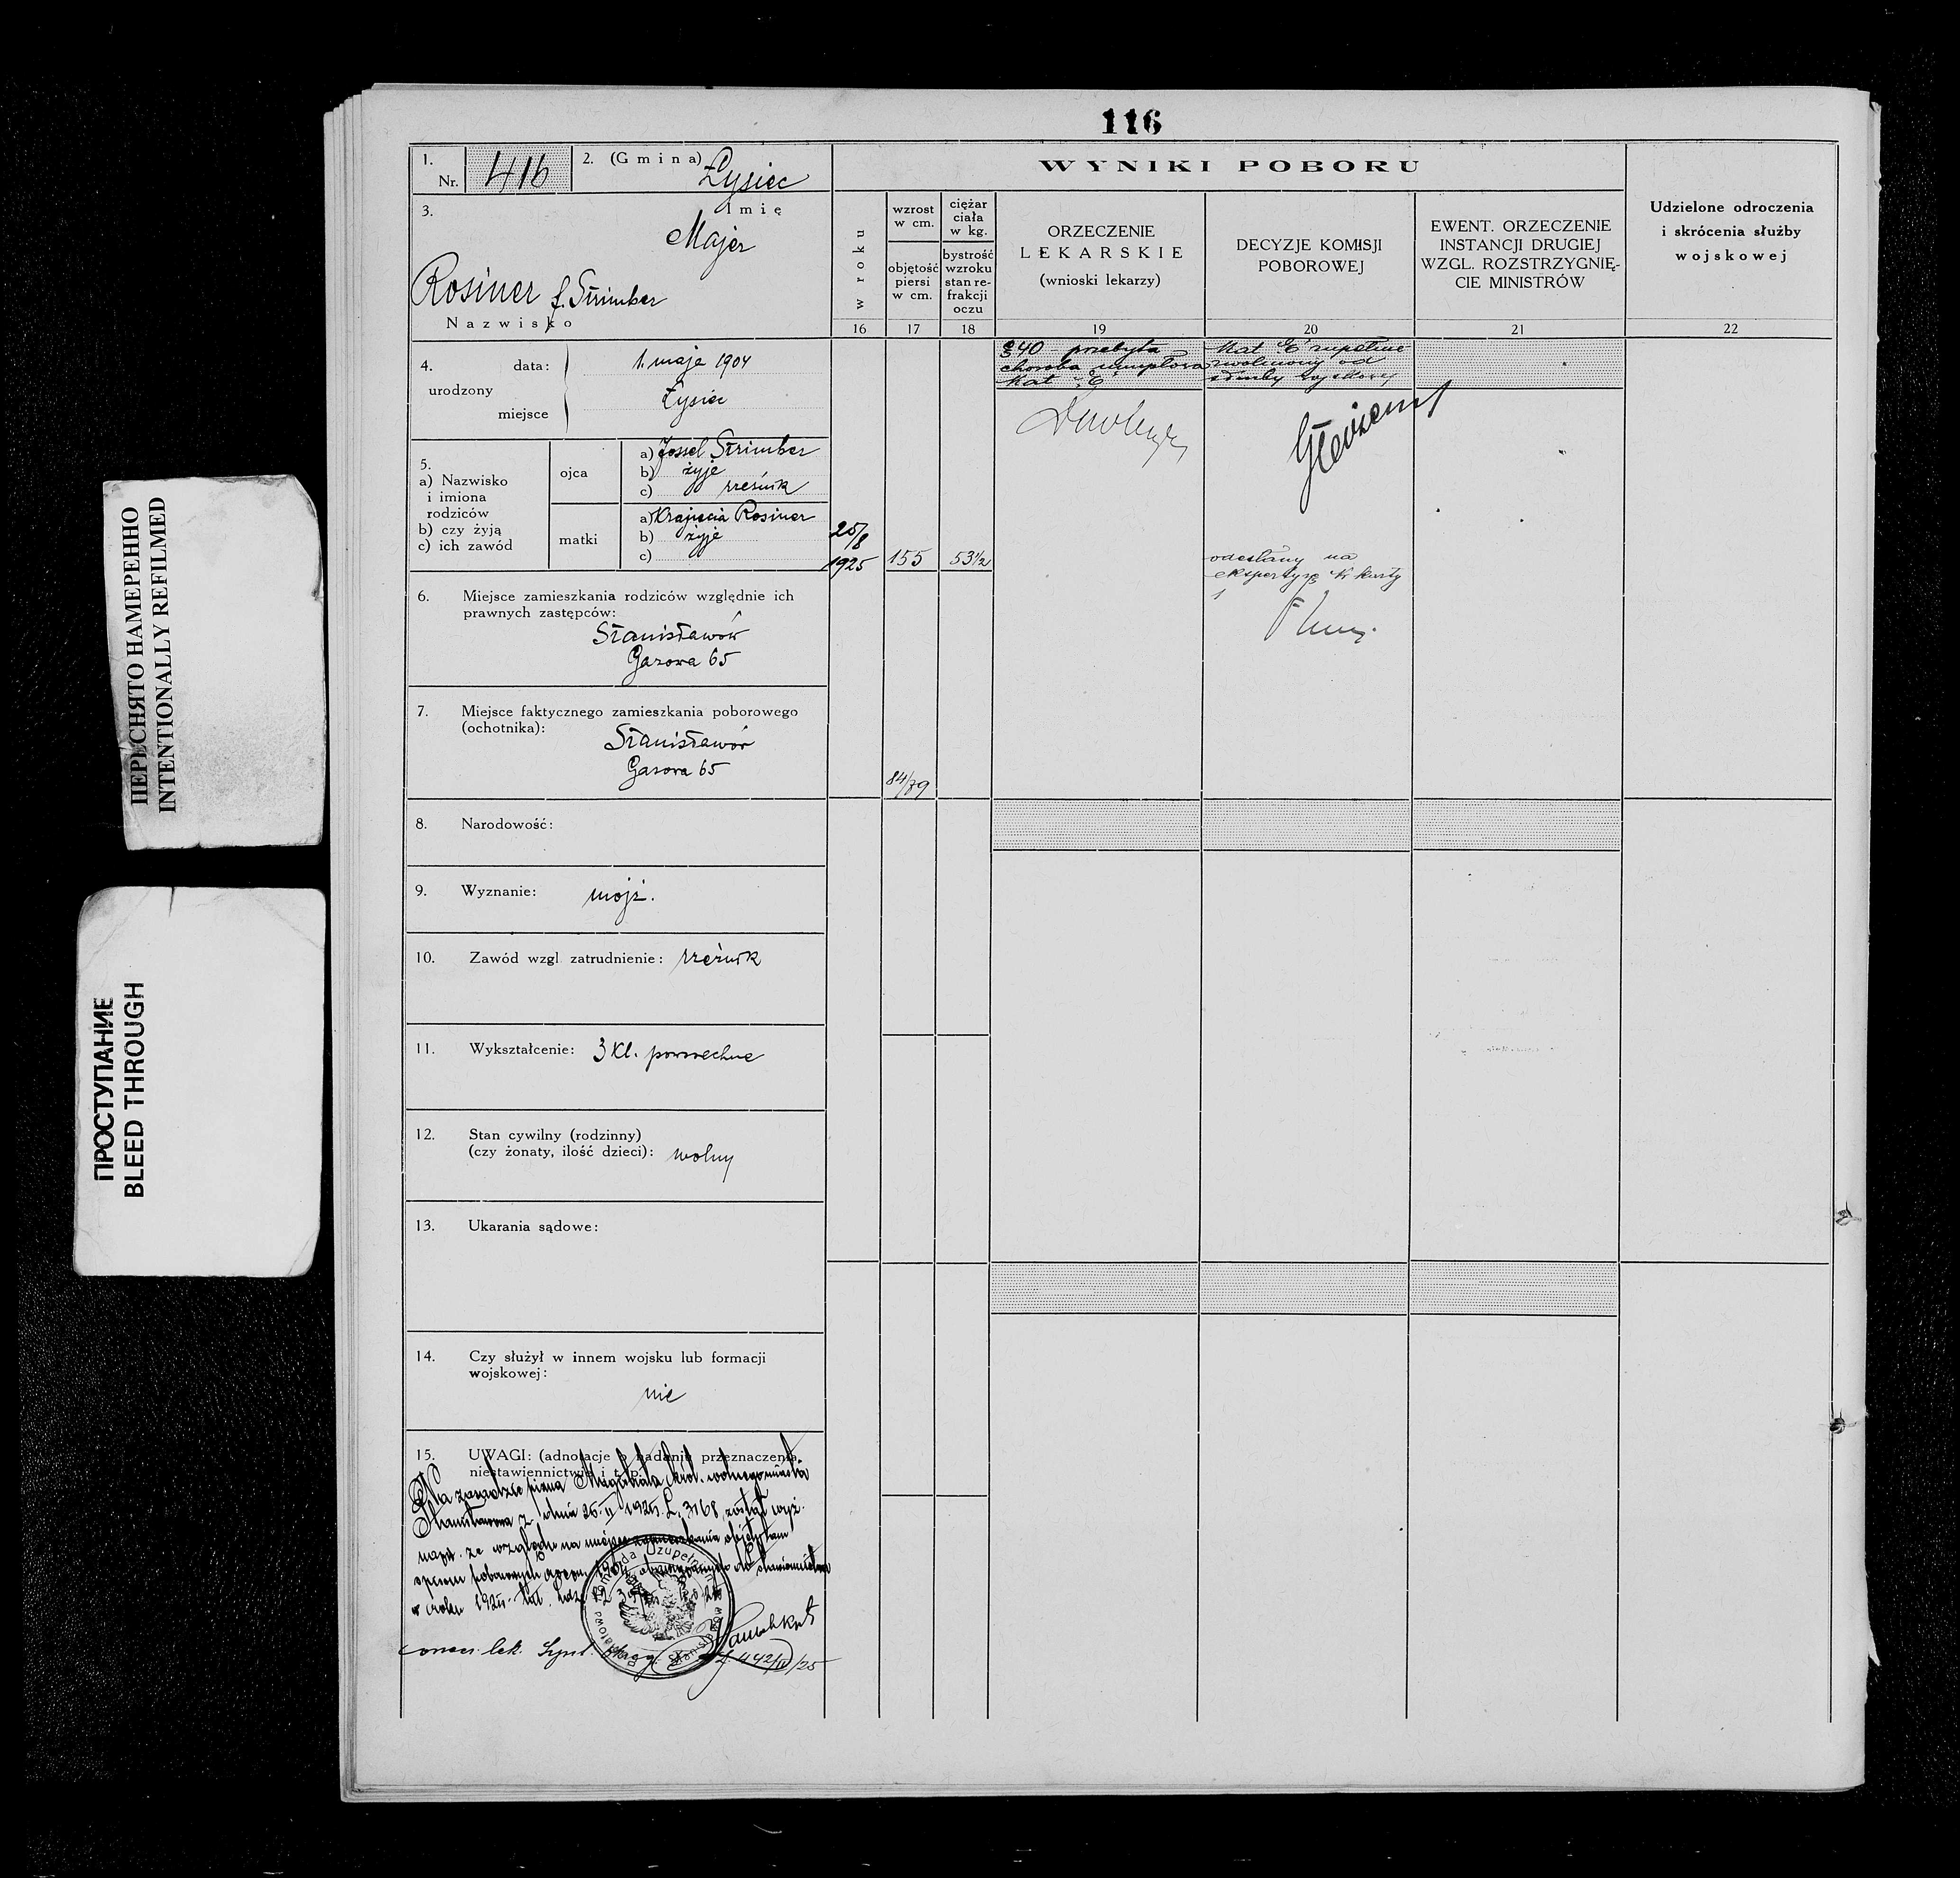 116
1.
Nr. 416
2. (Gmina) Łysiec
3. Imię
Majer
Rosiner f. Strimber
Nazwisko
4. urodzony
data: 1. maja 1904
miejsce Łysiec
5.
a) Nazwisko
i imiona
rodziców
b) czy żyją
c) ich zawód
ojca
a) Jossel Strimber
b) żyje
c) rzeźnik
matki
a) Rosiner
b) żyje
c)
6. Miejsce zamieszkania rodziców względnie ich
prawnych zastępców:
Stanisławów
Gazowa 65
7. Miejsce faktycznego zamieszkania poborowego
(ochotnika):
Stanisławów
Gazowa 65
8. Narodowość:
9. Wyznanie: mojż.
10. Zawód wzgl. zatrudnienie: rzeźnik
11. Wykształcenie: 3 kl. powszechne
12. Stan cywilny (rodzinny)
(czy żonaty, ilość dzieci): wolny
13. Ukarania sądowe:
14. Czy służył w innem wojsku lub formacji
wojskowej:
nie
15. UWAGI: (adnotacje o nadaniu przeznaczenia,
niestawiennictwie i t. p.)
Na zasadzie pisma Magistratu król. wolnego miasta
Stanisławowa z dnia 26. II 1925 L. 3168, został wyż.
wym. ze względu na miejsce zamieszkania objętym
spisem poborowych roczn. 1904
w roku 1925
442/II/25
WYNIKI POBORU
w roku
16
wzrost
w cm.
objętość
piersi
w cm.
17
ciężar
ciała
w kg.
bystrość
wzroku
stan re-
frakcji
oczu
18
ORZECZENIE
LEKARSKIE
(wnioski lekarzy)
19
DECYZJE KOMISJI
POBOROWEJ
20
EWENT. ORZECZENIE
INSTANCJI DRUGIEJ
WZGL. ROZSTRZYGNIĘ-
CIE MINISTRÓW
21
Udzielone odroczenia
i skrócenia służby
wojskowej
22
25/8
1925
155
53 1/2
84/89
§40 przebyta
choroba umysłowa
kat "E"
Kat "E" zupełnie
zwolniony od
służby wojskowej
odesłany na
ekspertyzę
ПЕРЕСНЯТО НАМЕРЕННО
INTENTIONALLY REFILMED
ПРОСТУПАНИЕ
BLEED THROUGH